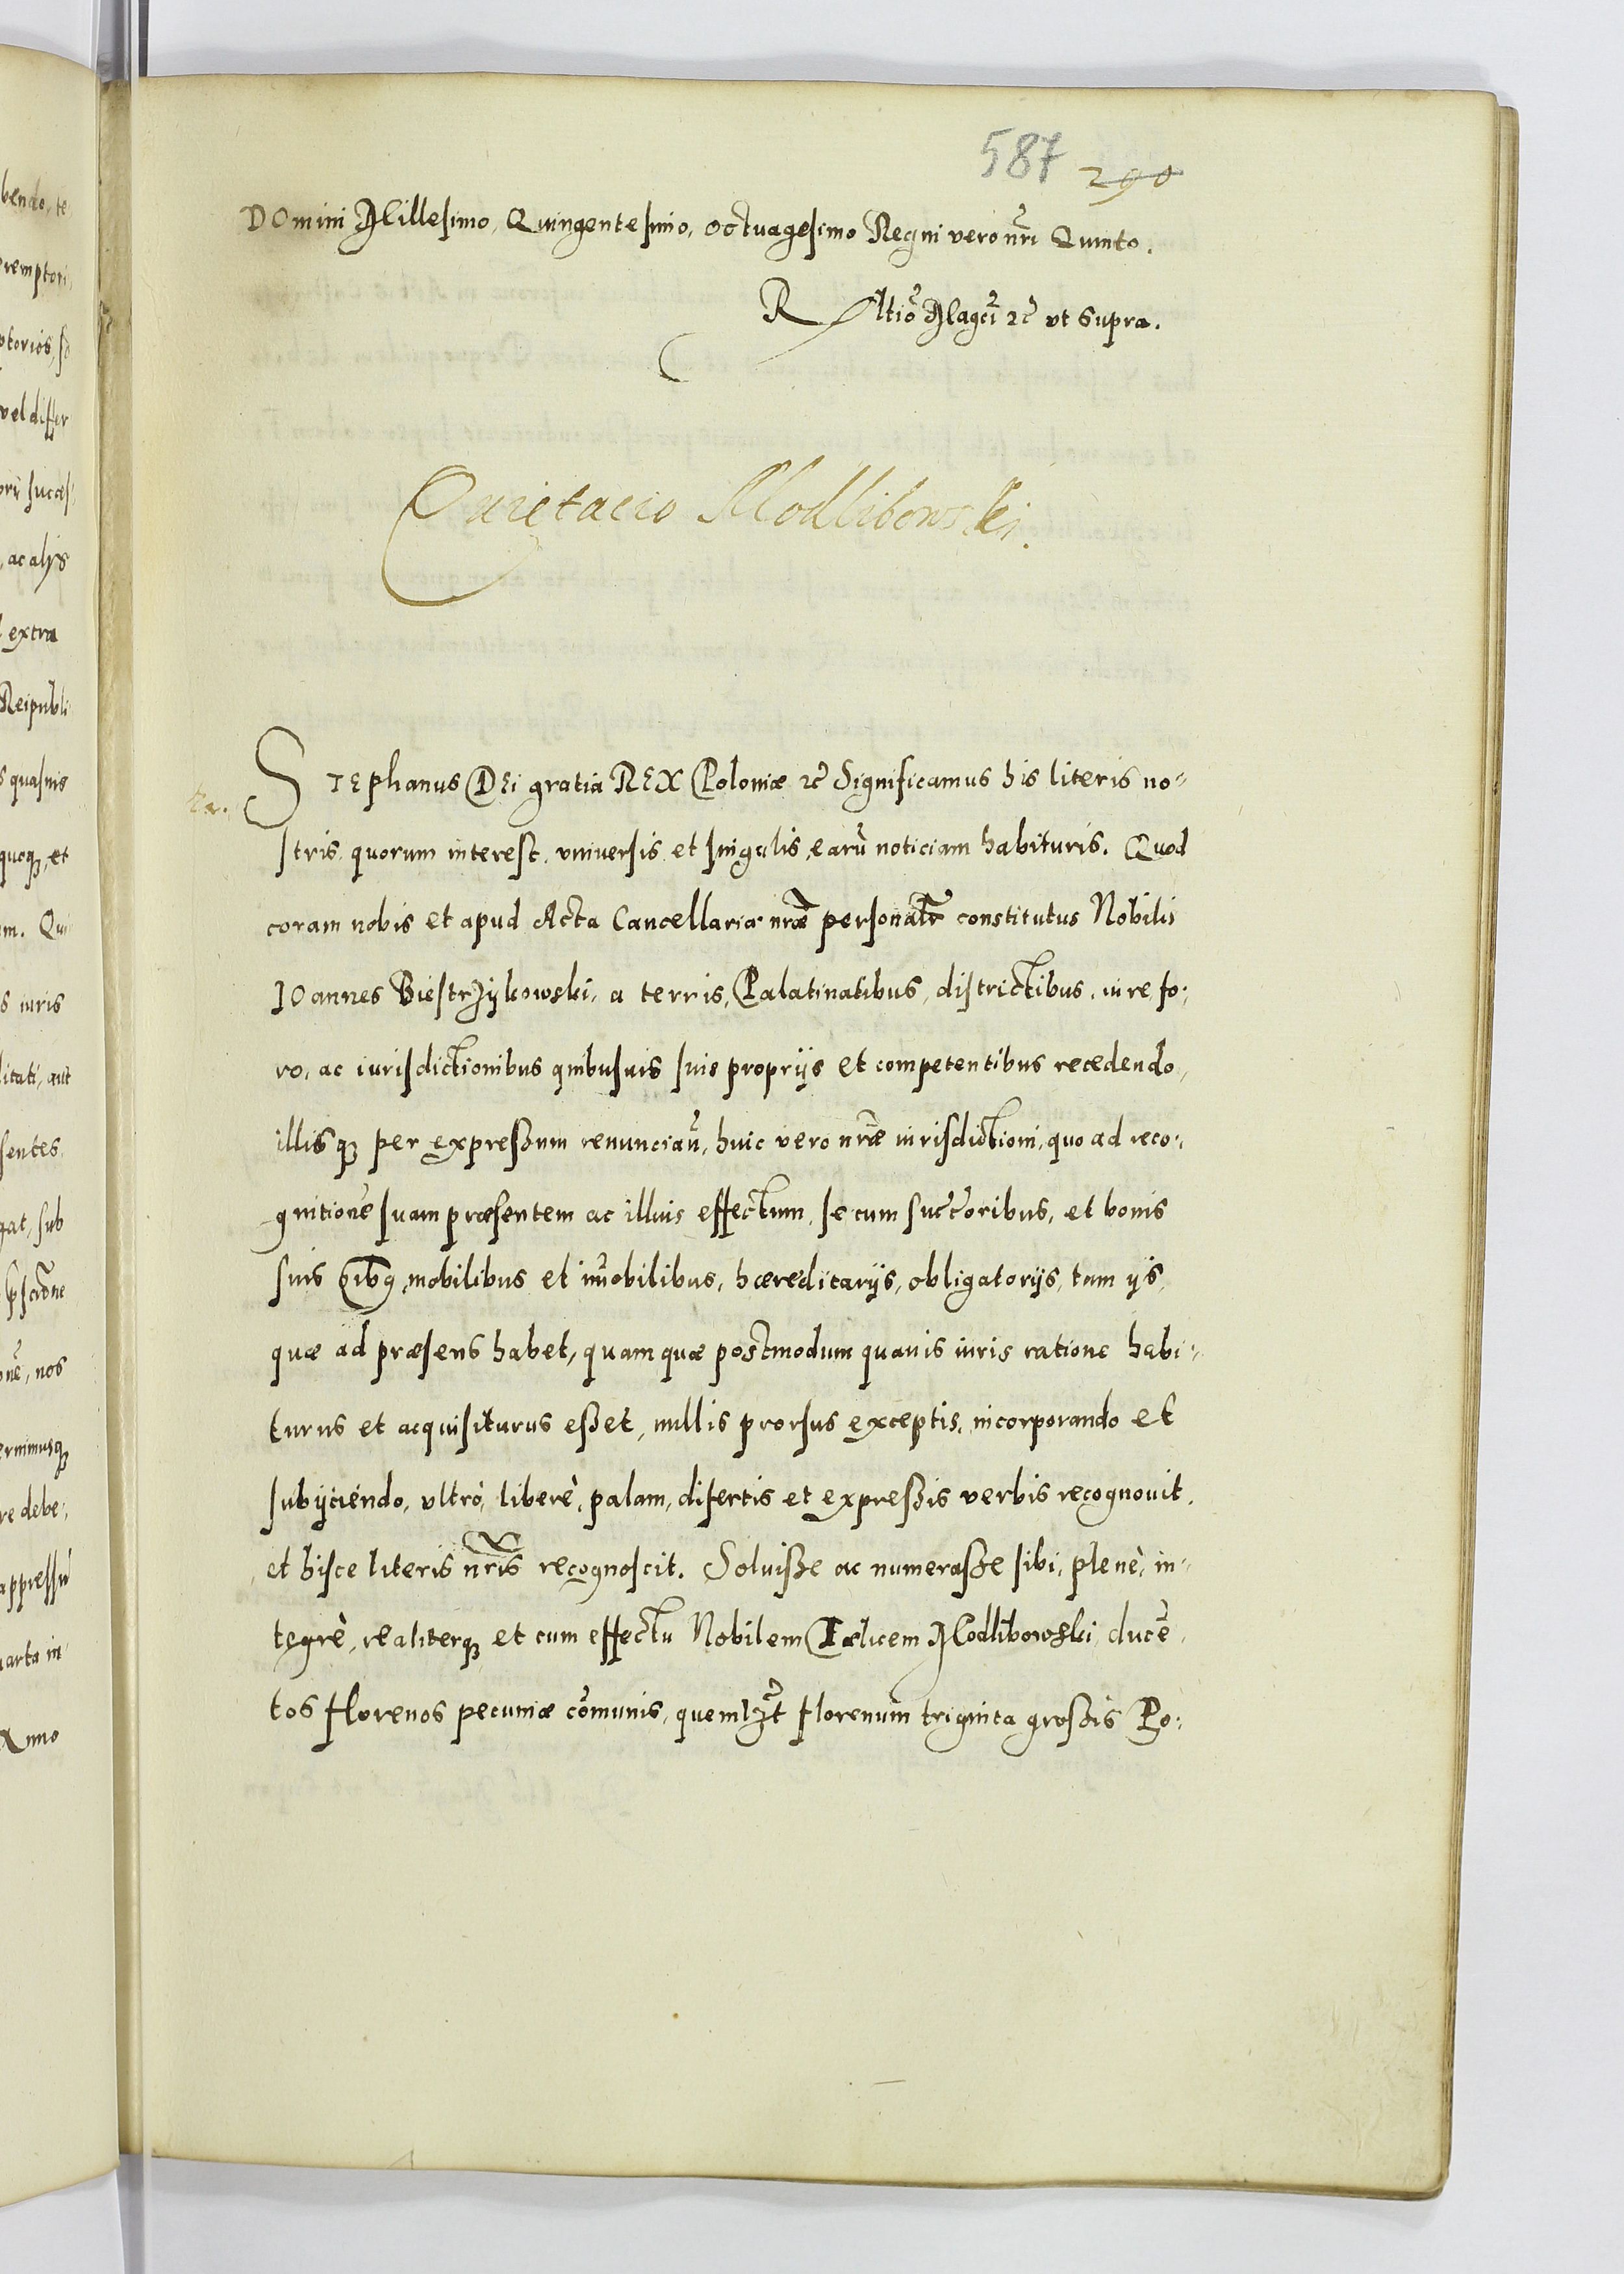 587 290
DOmini Millesimo, Quingentesimo, octuagesimo Regni vero nr̃i Quinto.
R ltiõ Magci ꝛc̃ vt supra.
Quietacio Modlibowski.
STEphanus DEi gratia REX Poloniæ ꝛc̃ Significamus his literis no-
stris, quorum interest, vniuersis et singulis, earũ noticiam habituris. Quod
coram nobis et apud Acta Cancellariæ nr̃æ personalr̃ constitutus Nobilis
IOannes Biestrzykowski, a terris, Palatinatibus, districtibus, iure, fo:
ro, ac iurisdictionibus quibusuis suis proprijs et competentibus recedendo,
illisqꝫ per expreßum renunciaũ, huic vero nr̃æ iurisdictioni, quo ad reco:
gnitionẽ suam præsentem ac illius effectum, se cum succ̃oribus, et bonis
suis oĩbꝗ, mobilibus et im̃obilibus, hæreditarijs, obligatorijs, tum ijs,
quæ ad præsens habet, quam quæ postmodum quauis iuris ratione habi:
turus et acquisiturus eßet, nullis prorsus exceptis, incorporando et
subijciendo, vltrò, liberè, palam, disertis et expreßis verbis recognouit,
et hisce literis nr̃is recognoscit. Soluiße ac numeraße sibi, plenè, in-
tegrè, realiterqꝫ et cum effectu Nobilem Fælicem Modlibowski, ducẽ
tos florenos pecuniæ com̃unis, quemlꝫt florenum triginta großis Po: